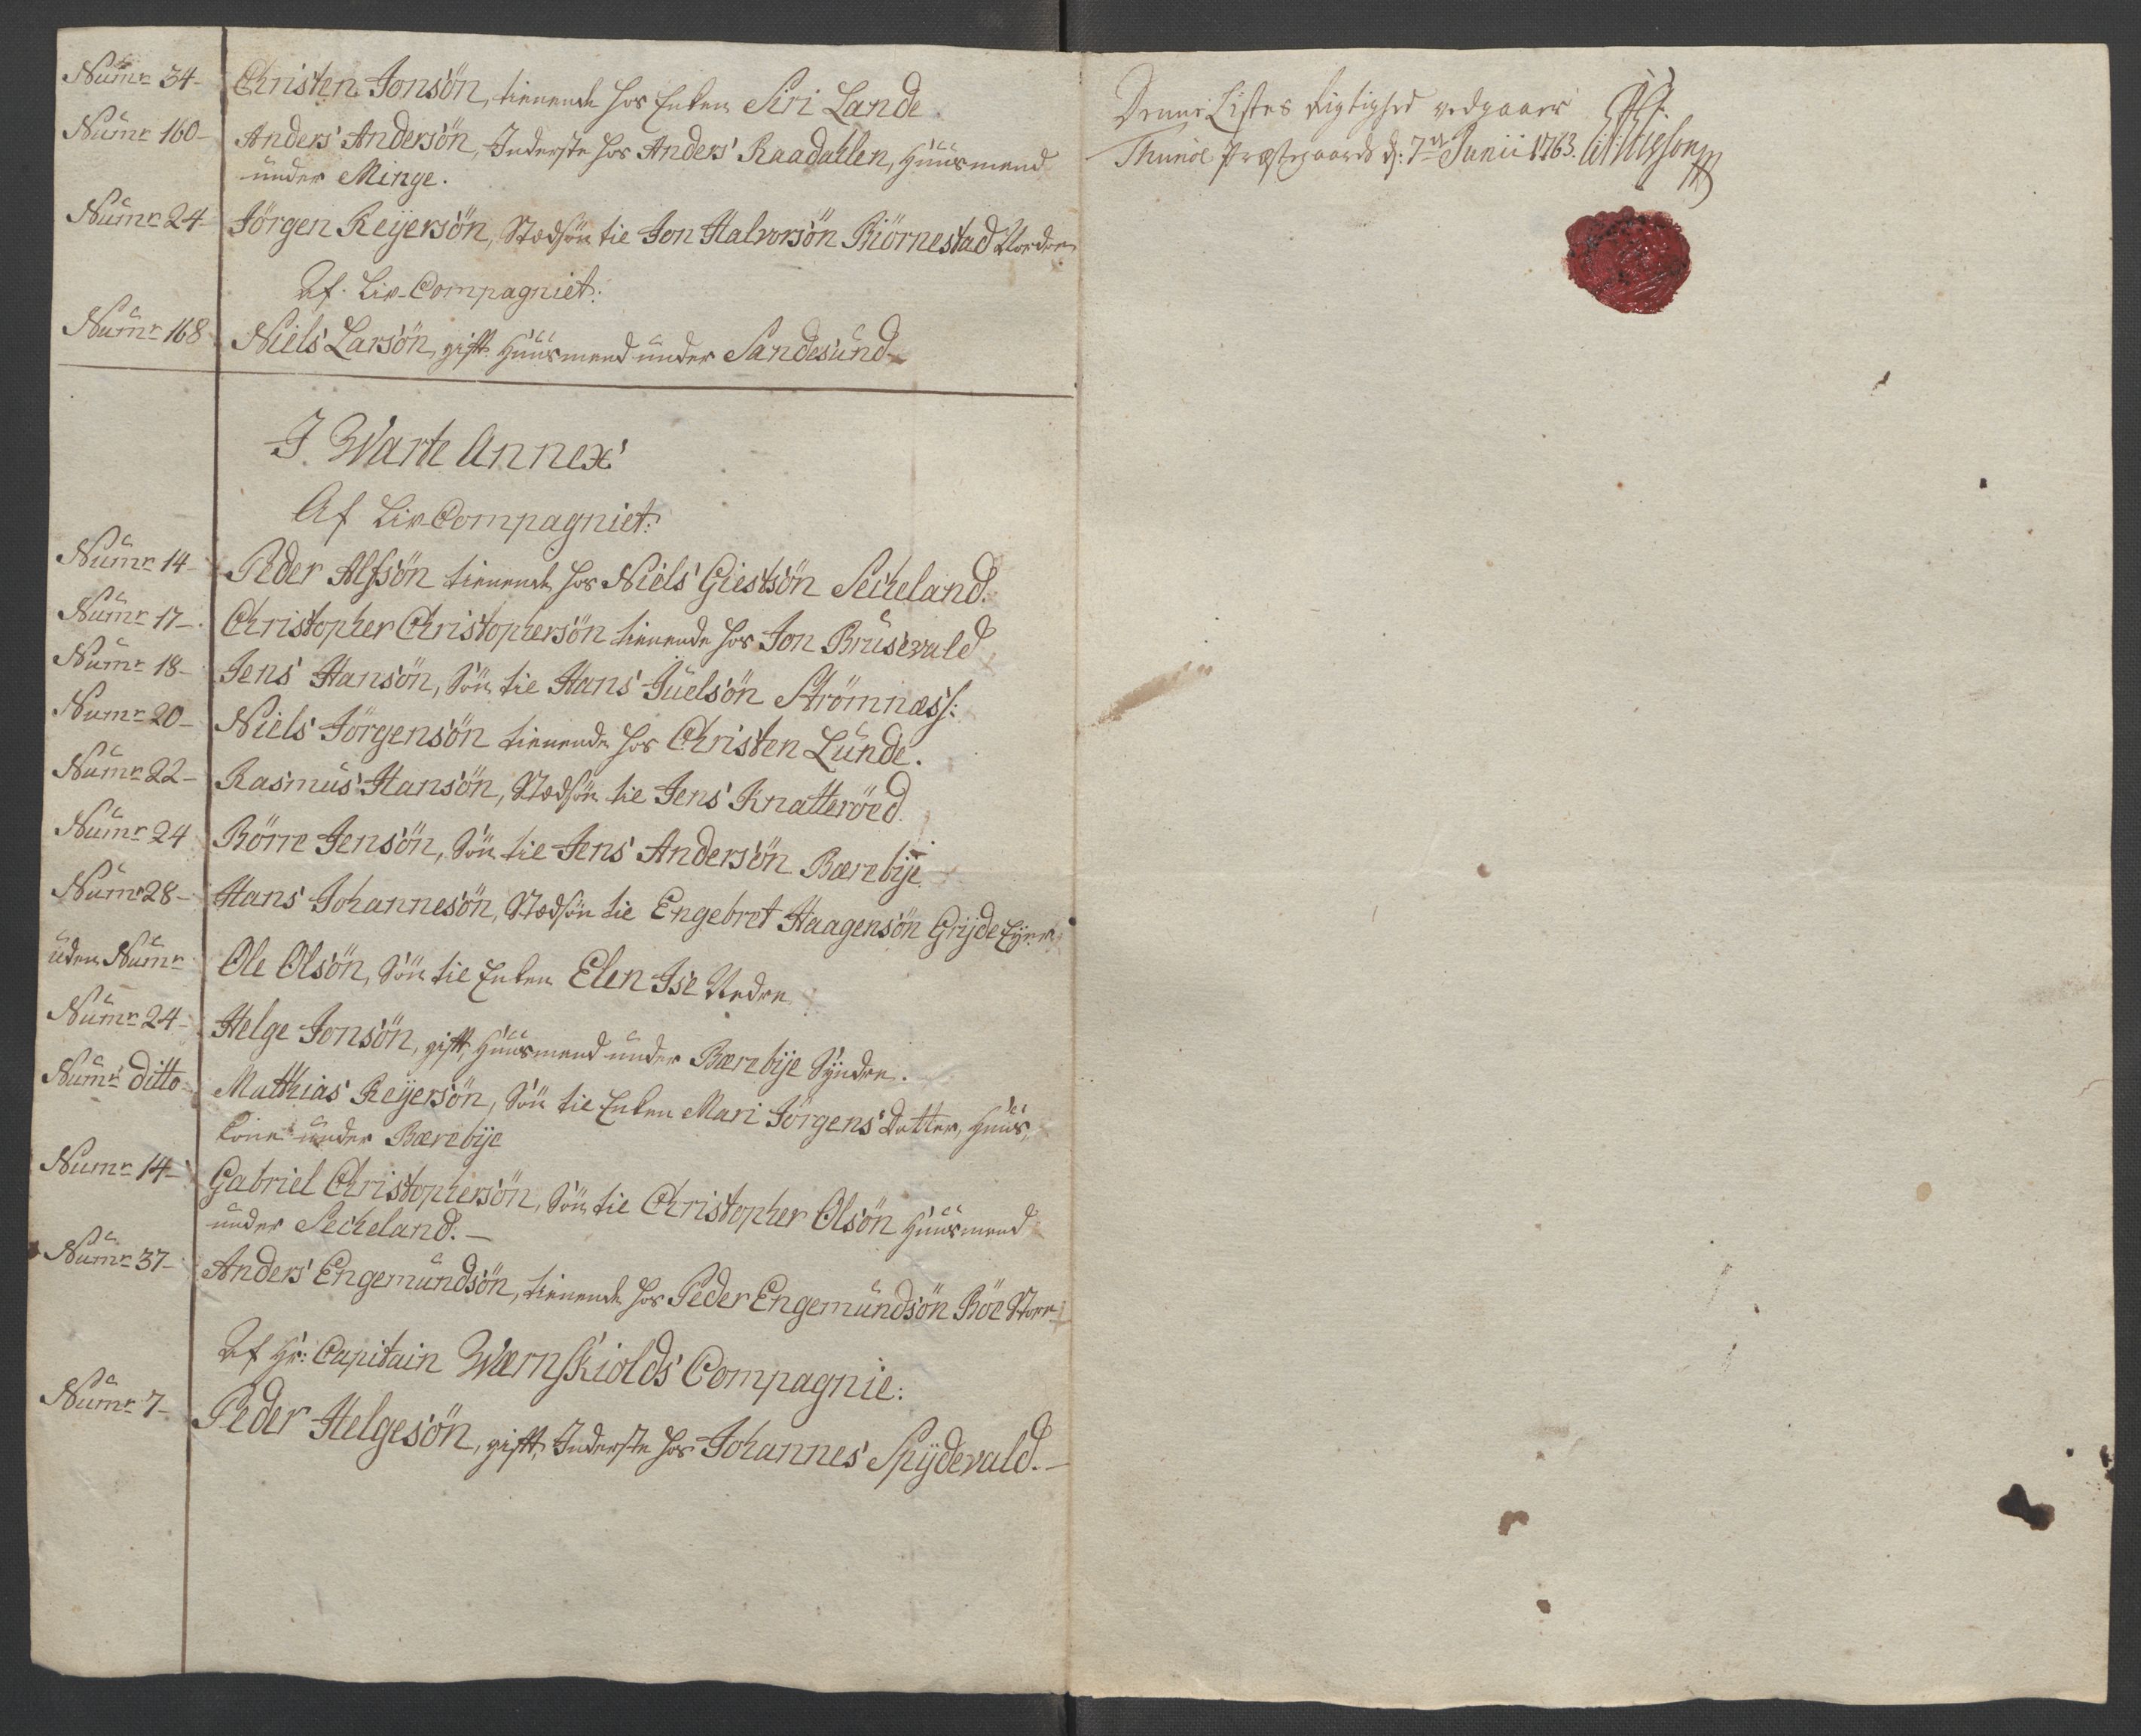 Num̄r 34- Christen Jonsön, tienende hos Enken Siri Lande.
Num̄r 160- Anders Andersön, Inderste hos Anders Raadahlen, Huusmend
under Minge.
Num̄r 24- Jörgen Reÿersön, Stedsön til Jon Halvorsön Biörnestad Nordre
Af Liv-Compagniet:
Num̄r 168 Niels Larsön, gift Huusmend under Sandesund-
I Warte Annex
Af Liv-Compagniet:
Num̄r 14- Peder Alfsön tienende hos Niels Giestsön Secheland.
Num̄r 17-. Christopher Christophersön tienende hos Jon Brusevald
Num̄r 18- Jens Hansön, Sön til Hans Juelsön Strömness:
Num̄r 20- Niels Jörgensön tienende hos Christen Lunde.
Num̄r 22- Rasmus Hansön, Stedsön til Jens Knatteröed.
Num̄r 24 Börre Jensön, Sön til Jens Andersön Bærebÿe
Num̄r 28- Hans Johannesön, Stedsön til Engebret Haagensön Grÿde
uden Num̄r Ole Olsön, Sön til Enken Elen Ise Nedre
Num̄r 24- Helge Jonsön, gift, Huusmend under Bærebÿe Sÿndre.
Num̄r ditto- Matthias Reÿersön, Sön til Enken Mari Jörgens Datter, Huus-
kone under Bærebÿe
Num̄r 14- Gabriel Christophersön, Sön til Christopher Olsön Huusmend
under Secheland.-
Num̄r 37- Anders Engemundsön, tienende hos Peder Engemundsön Böe Store
Af Hr: Capitain Wærnskiolds Compagnie:
Num̄r 7- Peder Helgesön, gift, Inderste hos Johannes Spÿdevald.-
Denne Listes Rigtighed vedgaaer
Thunöe Præstegaard d: 7de Junii 1763.